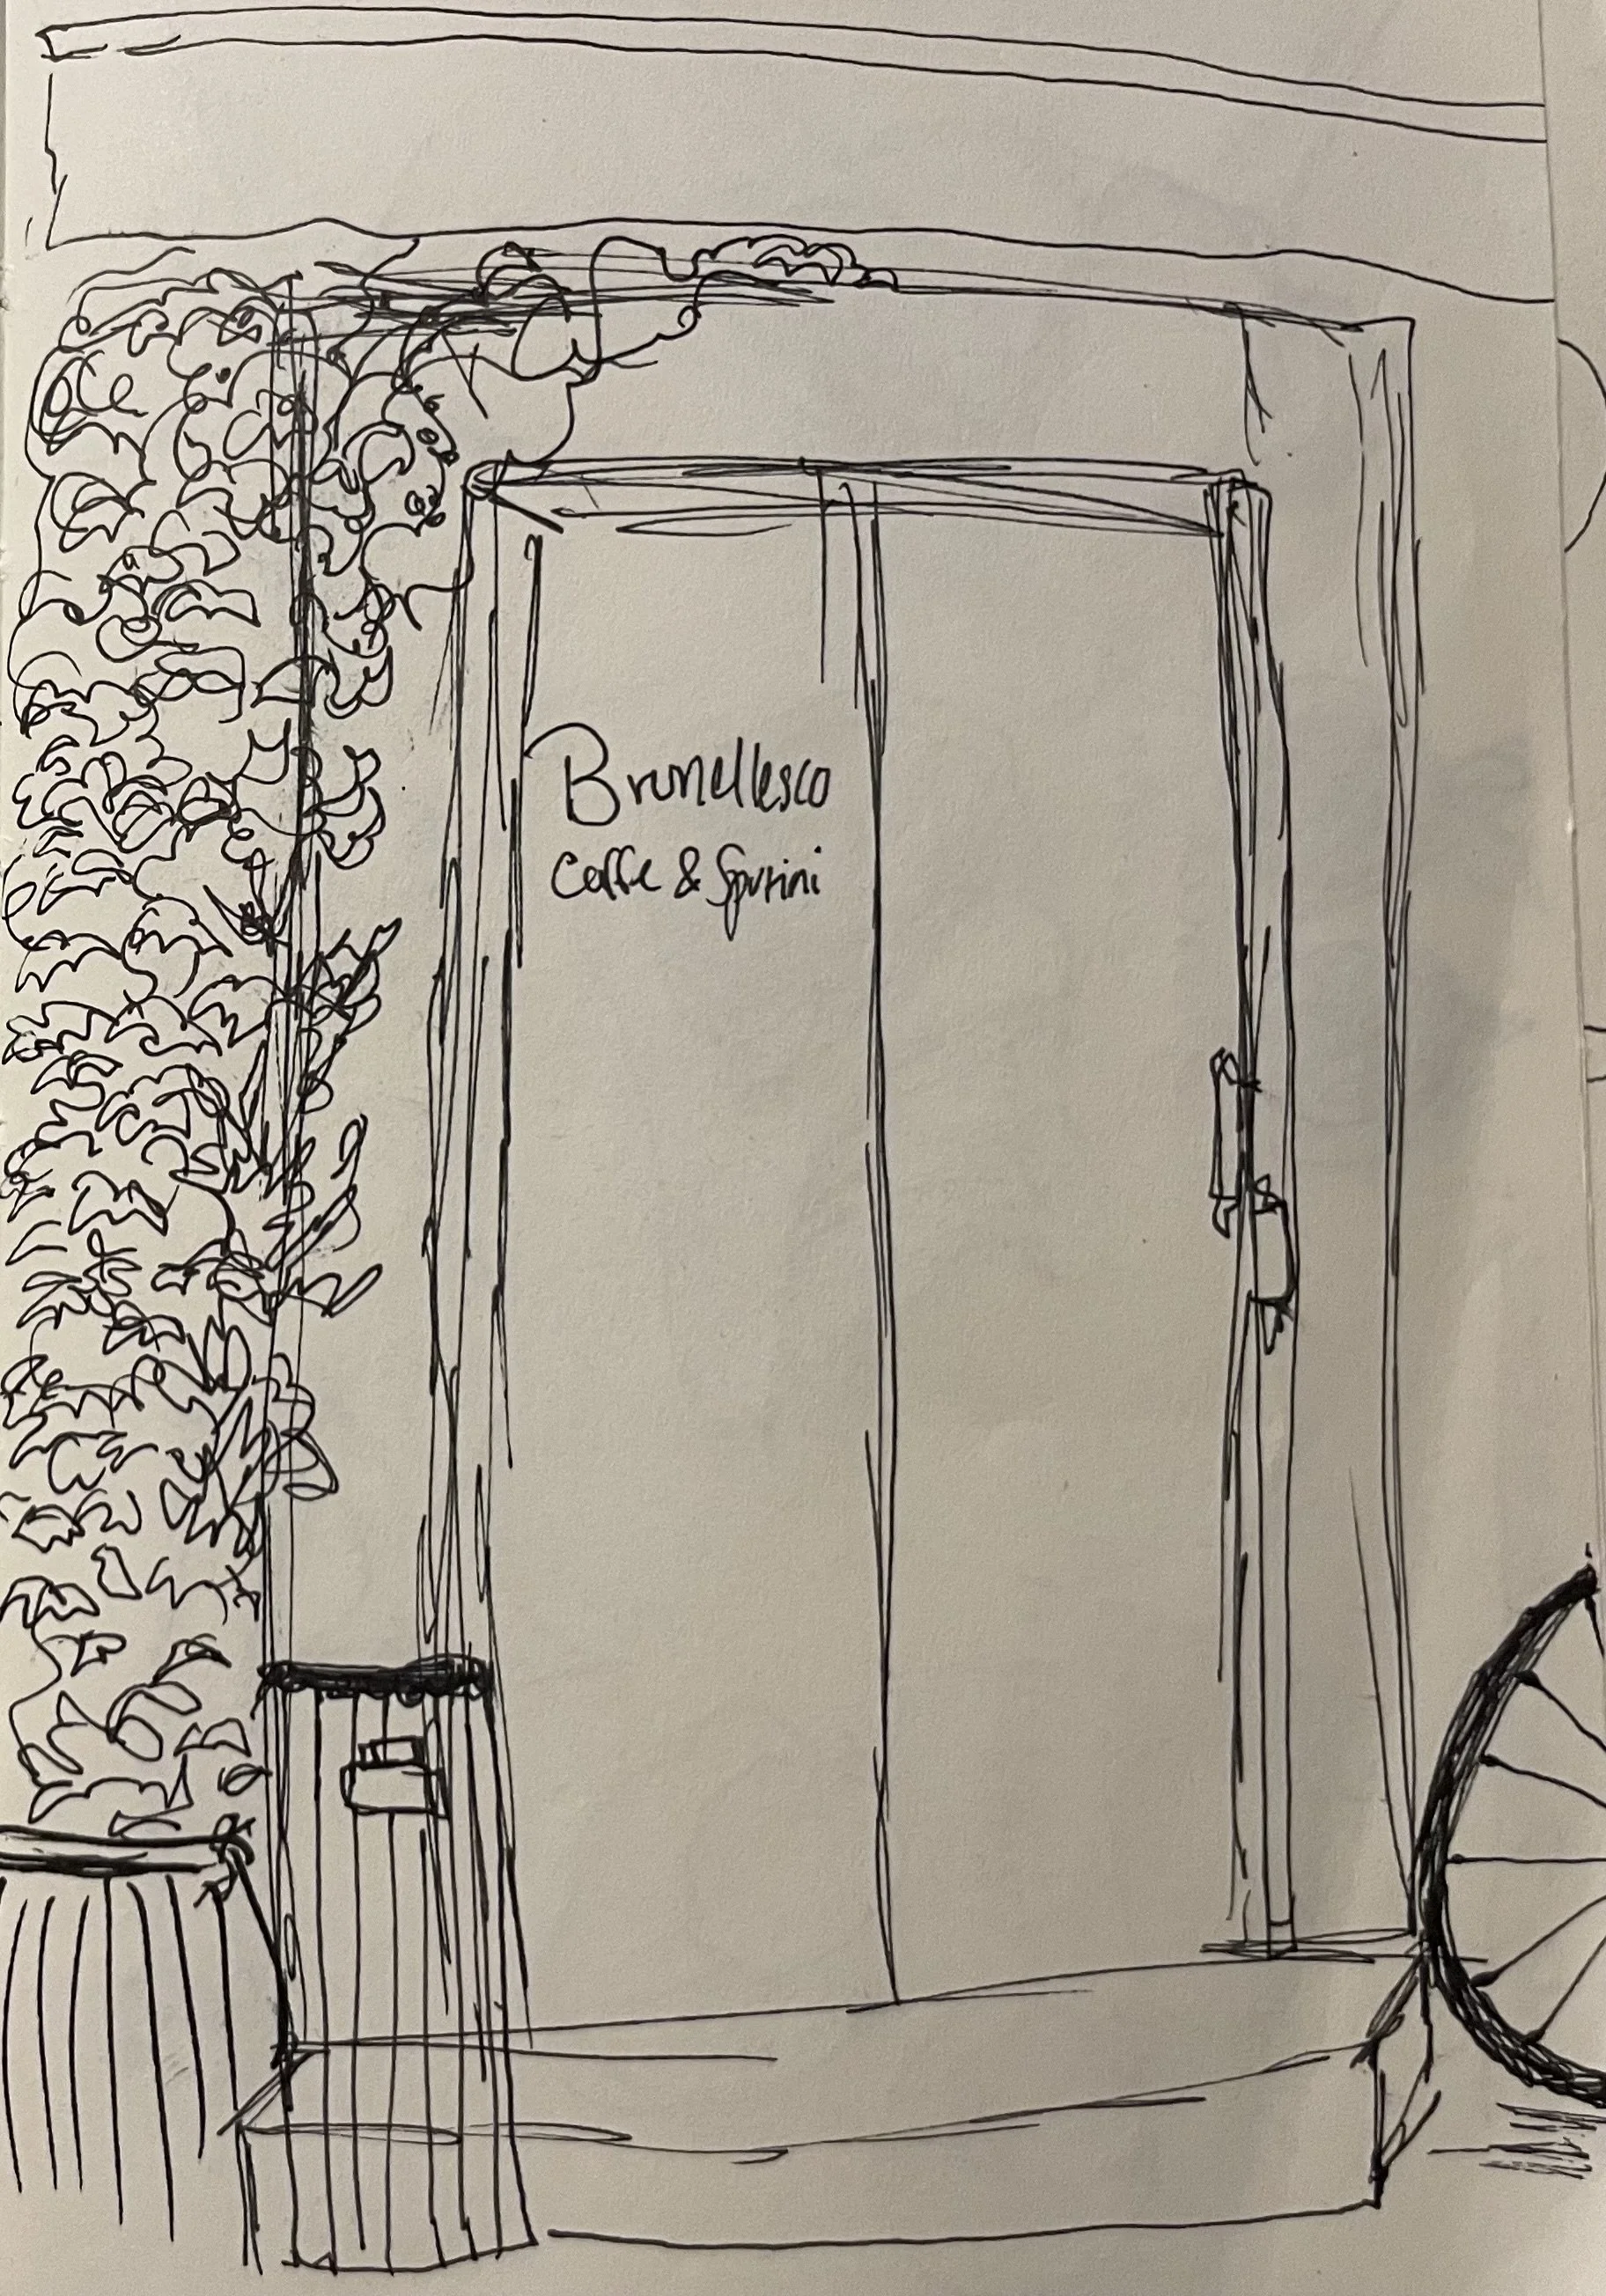 Brunellesco
Caffe & Spurini